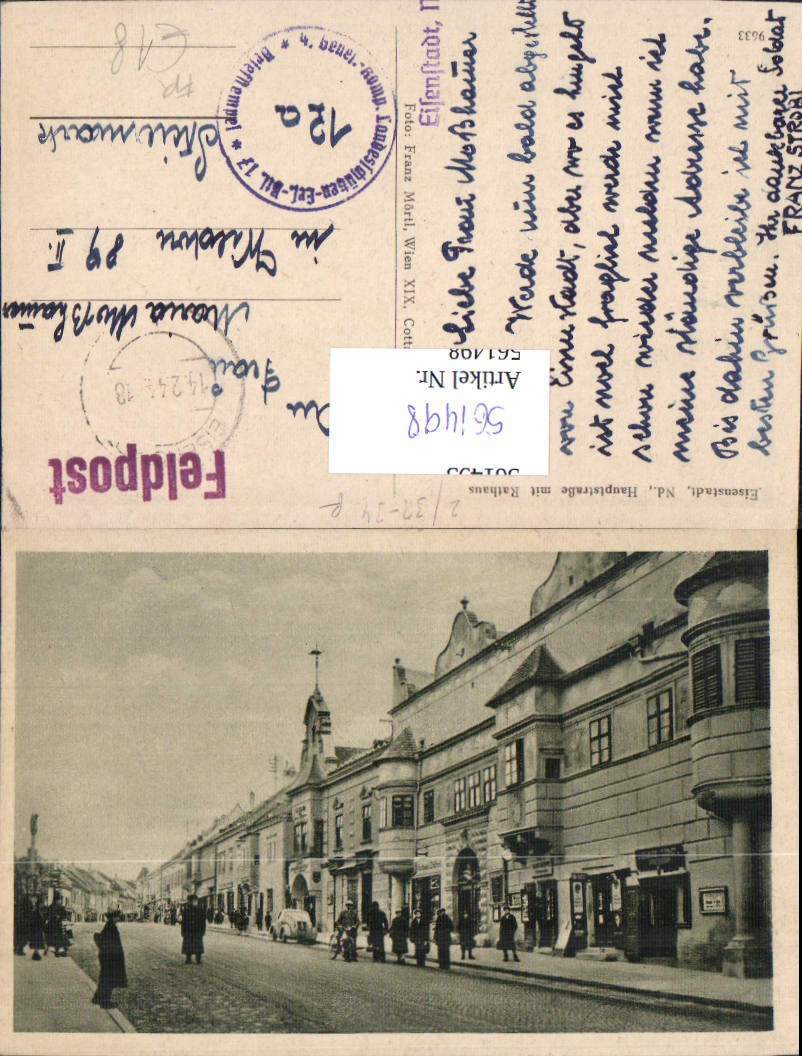 Eisenstadt, Nd., Hauptstraße mit Rathaus
9633
Liebe Frau Moßhamer
Werde nun bald abgestellt
von Eisenstadt, aber wo es hingeht
ist noch fraglich werde mich
schon wieder melden wenn ich
meine ständige Adresse habe.
Bis dahin verbleibe ich mit
besten Grüßen. Ihr dankbarer Soldat
FRANZ STROBL
Eisenstadt, N
Foto: Franz Mörtl, Wien XIX, Cott
Feldpost
14.2.4
18
EISE
12a
Landesschützen-Ers.-Btl. 17 * Briefstempel *
An
Frau
Maria Moßhamer
in Wildon 89 II.
Steiermark
€18
2/37-34 P
561498
Artikel Nr.
561498
561495